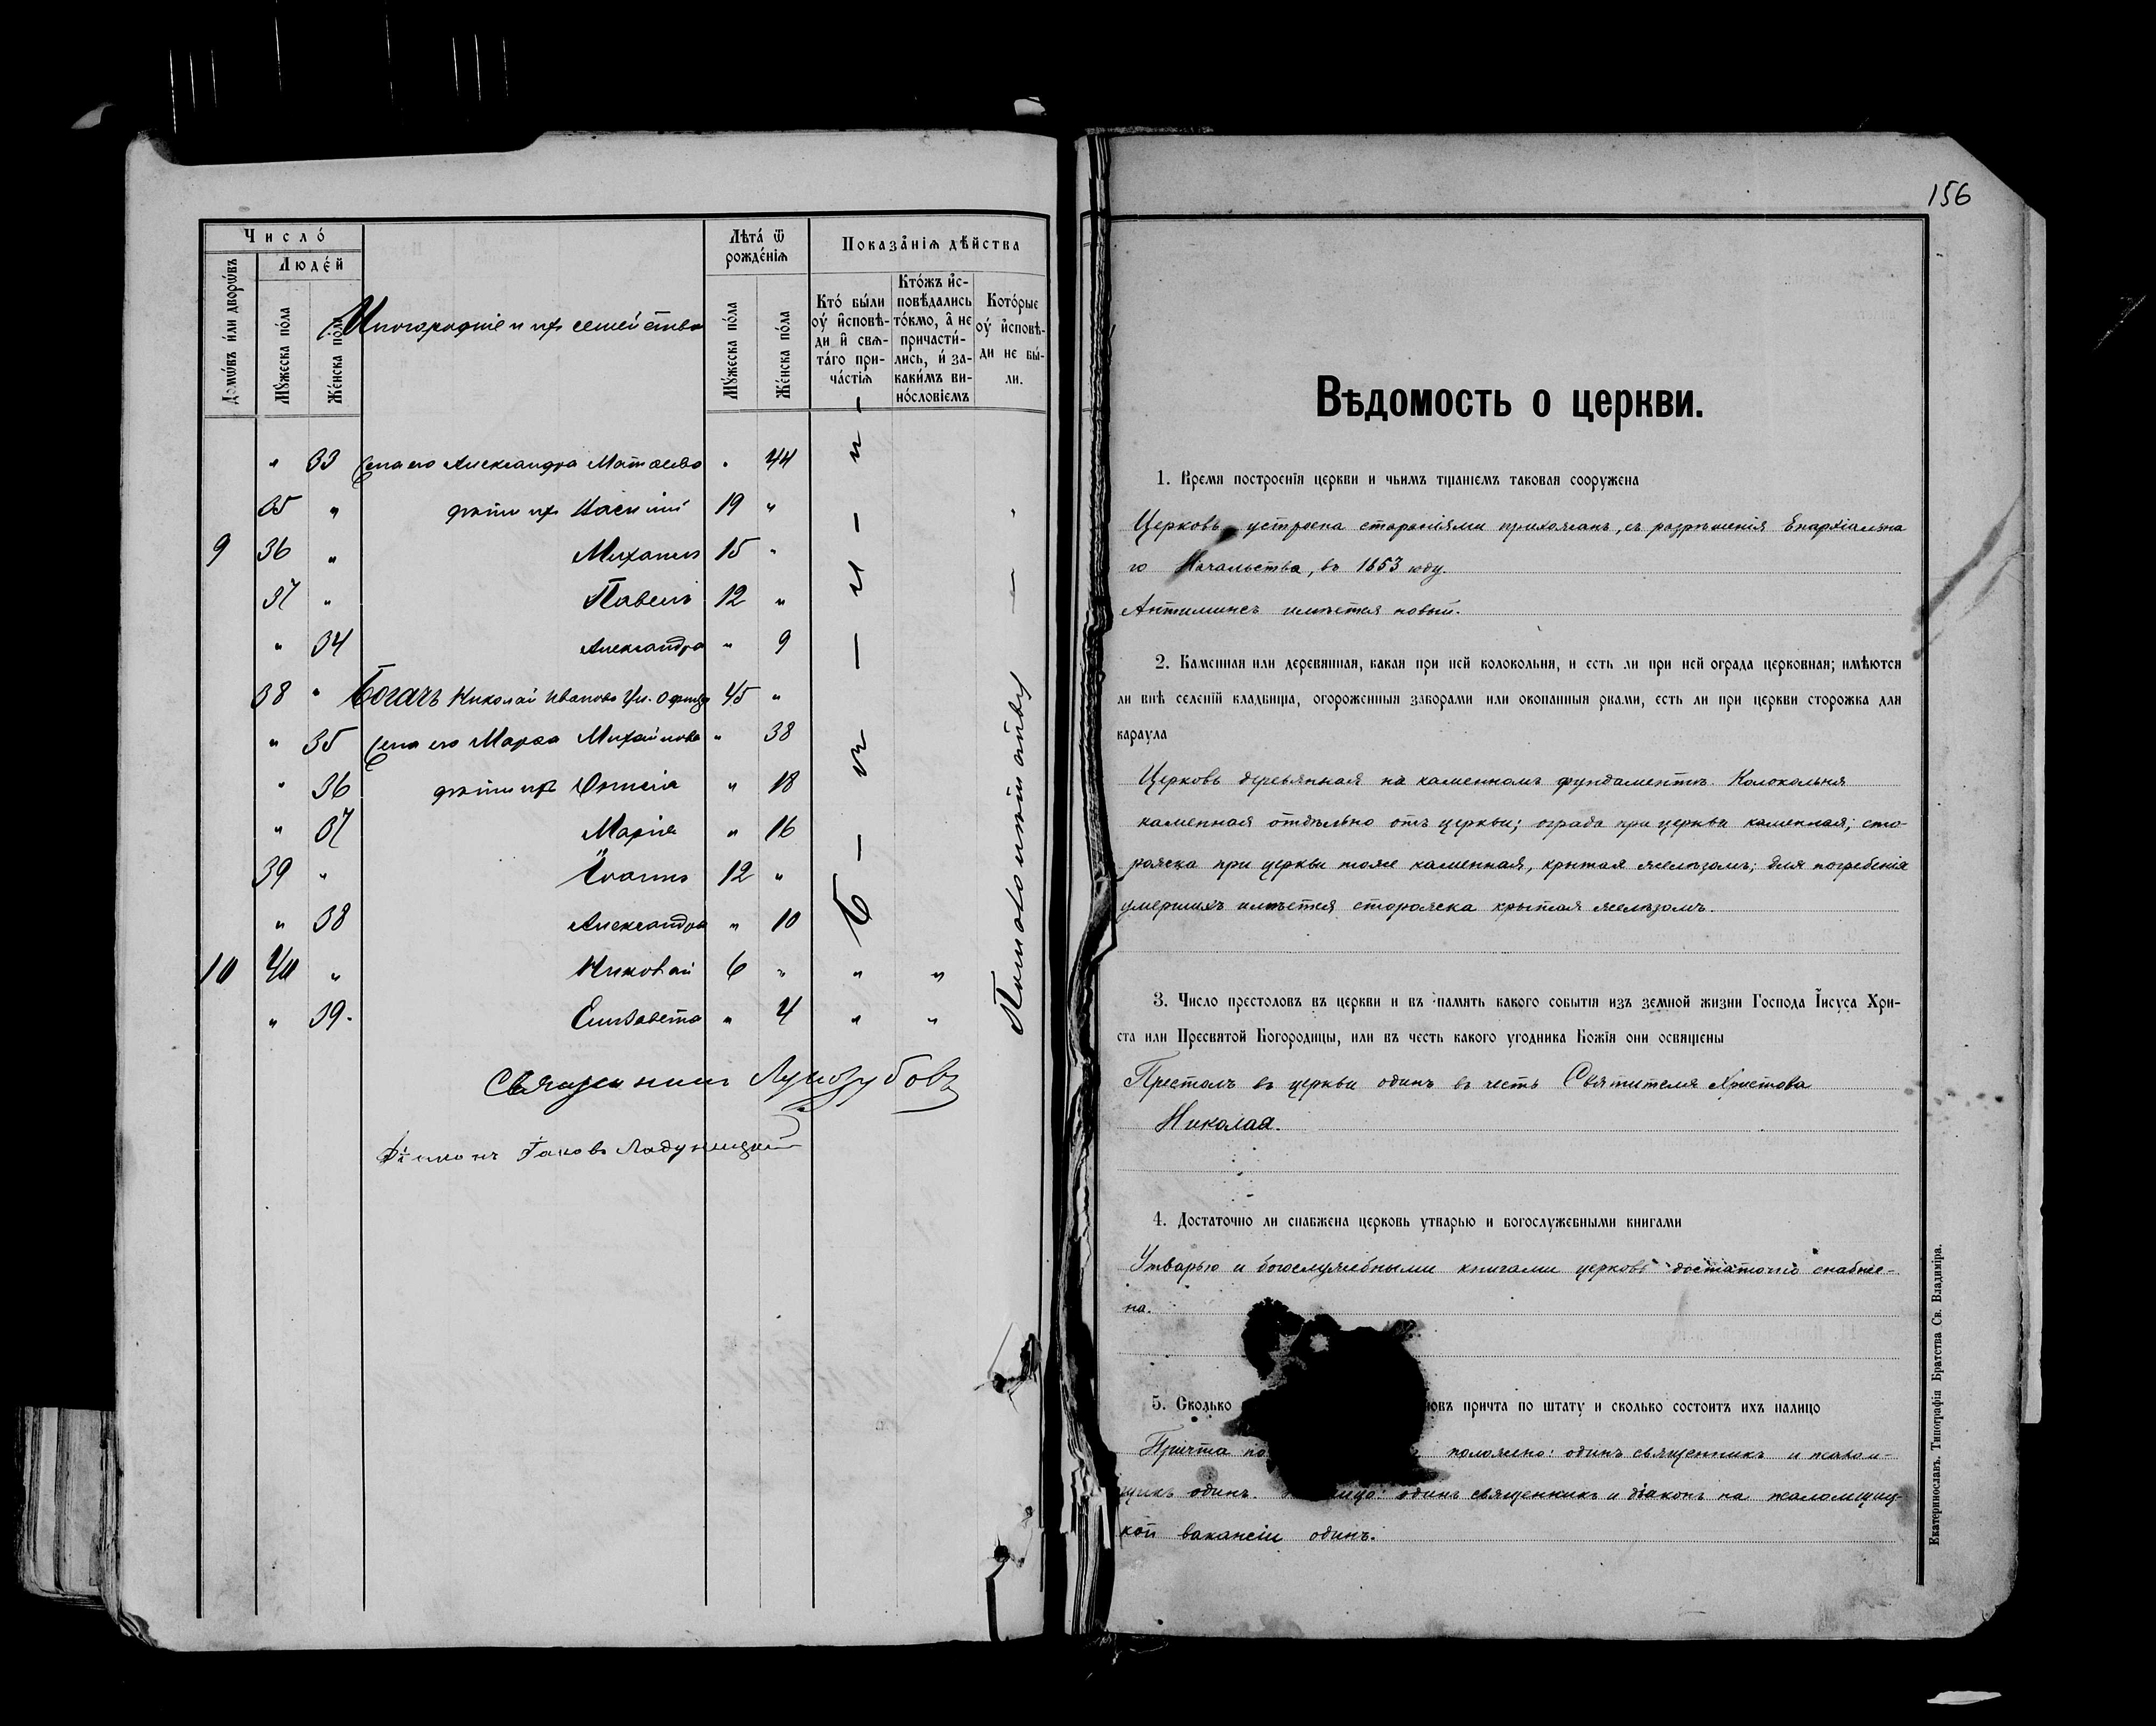 Число́
Людéй
Домѡ́въ и҆лѝ дворѡ́въ
Мꙋ́жеска по́ла
Же́нска по́ла
Иногородніе и ихъ семейства
Лѣта́ ѿ рожде́нїѧ
Мꙋ́жеска по́ла
Же́нска по́ла
Показа̑нїѧ дѣ́йства
Кто̀ бы́ли оу҆ и҆сповѣди и҆ свѧта́го прича́стїѧ
Кто́жъ и҆сповѣ́дались то́кмо, а҆ не причасти́лись, и҆ за каки́мъ вино́словїемъ
Кото́рые оу҆ и҆сповѣди не бы́ли.
" 33 Жена его Александра Матѳеева " 44
35 " дѣти ихъ Василій 19 "
9 36 " Михаилъ 15 "
37 " Павелъ 12 "
" 34 Александра " 9
38 " Богачъ Николай Ивановъ 45 "
" 35 Жена его Марѳа Михайлова " 38
" 36 дѣти ихъ " 18
" 37 Марія " 16
39 " Іоаннъ 12 "
" 38 Александра " 10
10 40 " Николай 6 " " "
" 39. Елизавета " 4 " "
Б — ы — л — и —
Священникъ Лукозубовъ
Діаконъ Іаковъ Ладухицкій
156
Вѣдомость о церкви.
1. Время построенія церкви и чьимъ тщаніемъ таковая сооружена
Церковь устроена стараніями прихожанъ, съ разрѣшенія Епархіальна
го Начальства, въ 1853 году.
Антиминсъ имѣется новый.
2. Каменная или деревянная, какая при ней колокольня, и есть ли при ней ограда церковная; имѣются
ли внѣ селеній кладбища, огороженныя заборами или окопанныя рвами, есть ли при церкви сторожка для
караула
Церковь деревянная на каменномъ фундаментѣ. Колокольня
каменная отдѣльно отъ церкви; ограда при церкви каменная; сто-
рожка при церкви тоже каменная, крытая желѣзомъ; для погребенія
умершихъ имѣется сторожка крытая желѣзомъ.
3. Число престоловъ въ церкви и въ память какого событія изъ земной жизни Господа Іисуса Хри-
ста или Пресвятой Богородицы, или въ честь какого угодника Божія они освящены
Престолъ въ церкви одинъ въ честь Святителя Христова
Николая.
4. Достаточно ли снабжена церковь утварью и богослужебными книгами
Утварью и богослужебными книгами церковь достаточно снабже-
на.
5. Сколько новъ причта по штату и сколько состоитъ ихъ налицо
Причта по положено: одинъ священникъ и псалом-
щикъ одинъ. лицо: одинъ священникъ и діаконъ на псаломщиц-
кой вакансіи одинъ.
Екатеринославъ. Типографія Братства Св. Владиміра.